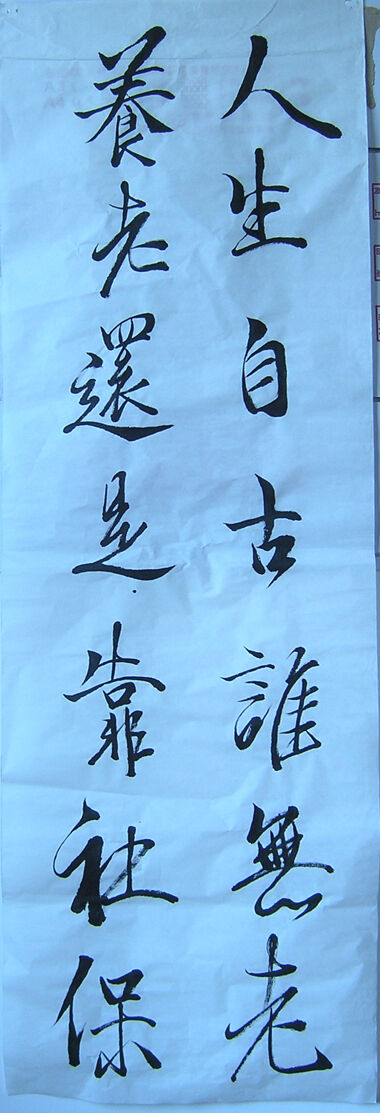 人生自古誰無老
養老還是靠社保